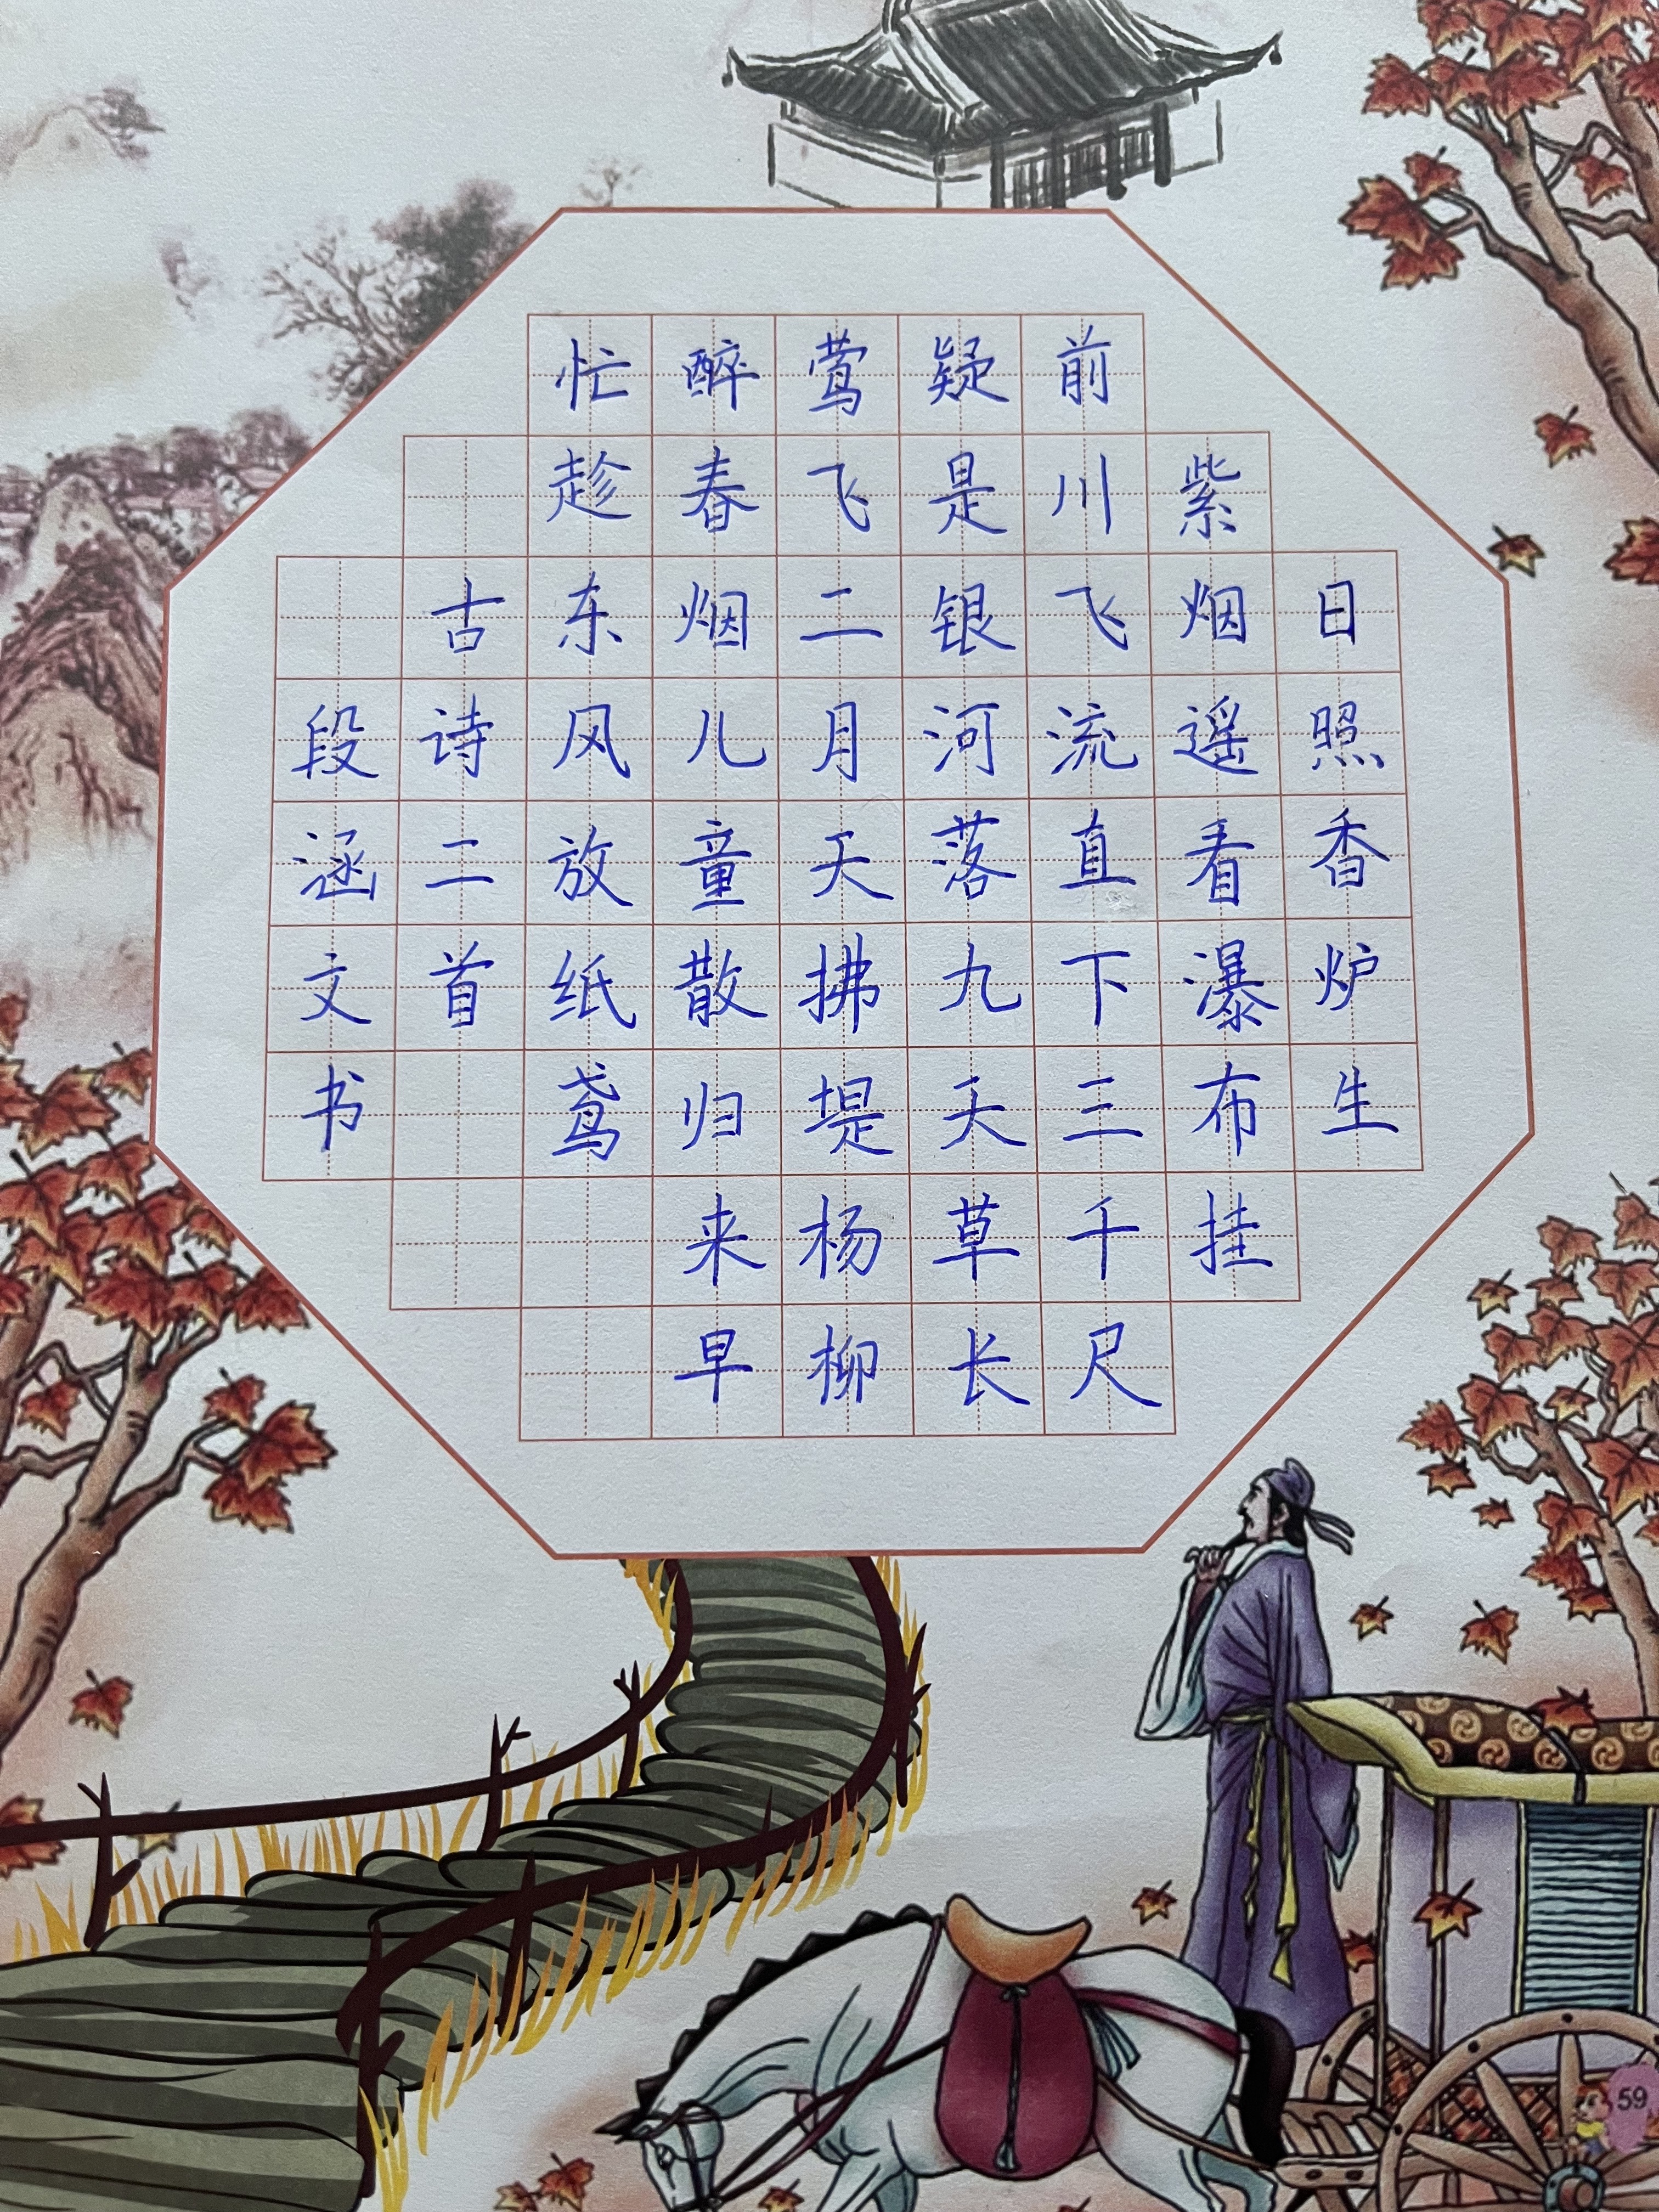 日照香炉生
紫烟遥看瀑布挂
前川飞流直下三千尺
疑是银河落九天草长
莺飞二月天拂堤杨柳
醉春烟儿童散归来早
忙趁东风放纸鸢
古诗二首
段涵文书
59